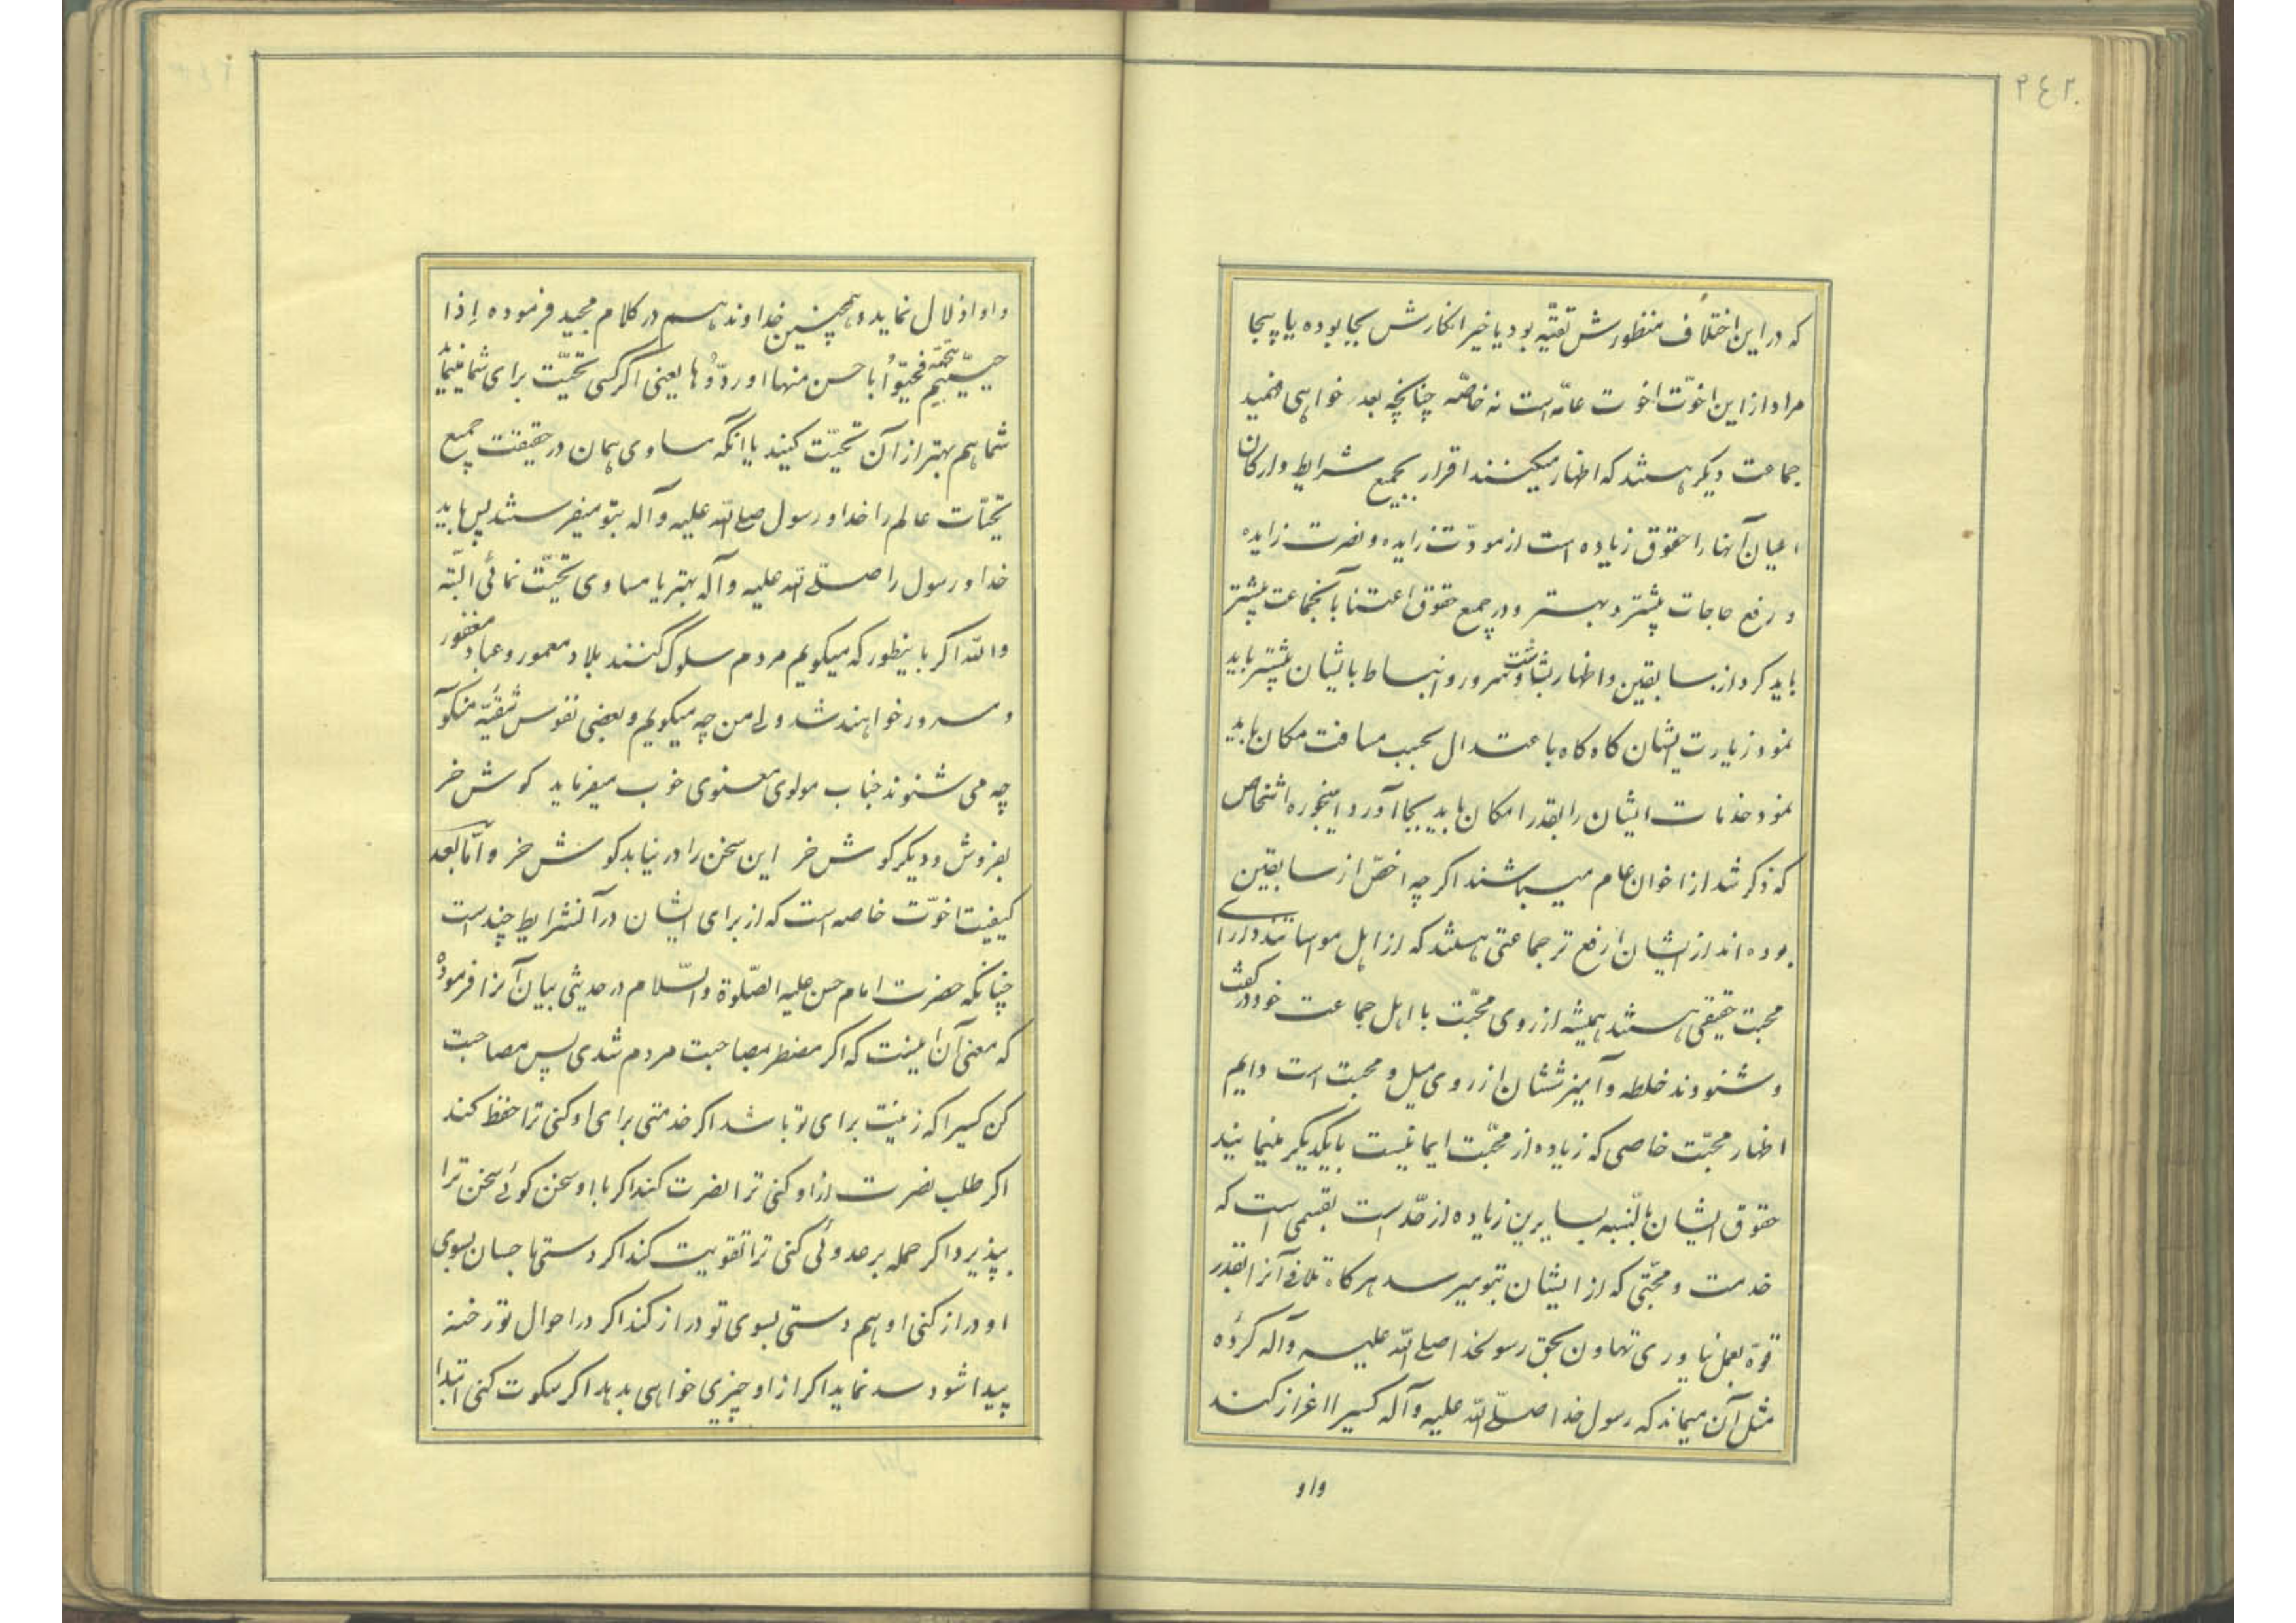 ٢٤٢
که در این اختلاف منظورش تقیّه بود یا خیر انکارش بجا بوده یا بیجا
مراد از این اخوّت اخوت عامّه است نه خاصّه چنانچه بعد خواهی فهمید
جماعت دیکر هستند که اظهار میکنند اقرار بجمیع شرایط و ارکان
اعیان آنها را حقوق زیاده است از مودّت زایده و نصرت زایده
و رفع حاجات بیشتر و بهتر و در جمیع حقوق اعتنا بآنجماعت بیشتر
باید کرد از سابقین و اظهار بشاشت و سرور و انبساط بایشان بیشتر باید
نمود زیارت ایشان کاه کاه باعتدال بحسب مسافت مکان باید
نمود خدمات ایشان را بقدر امکان باید بجا آورد و اینجوره اشخاص
که ذکر شد از اخوان عام میباشند اکر چه اخصّ از سابقین
بوده‌اند از ایشان ارفع تر جماعتی هستند که از اهل مواساتند و دارای
محبت حقیقی هستند همیشه از روی محبّت با اهل جماعت خود در گفت
و شنودند خلطه و آمیزششان از روی میل و محبت است دایم
اظهار محبّت خاصی که زیاده از محبّت ایمانیست بایکدیکر مینمایند
حقوق ایشان بالنّسبه بسایرین زیاده از حدّ است بقسمی است که
خدمت و محبّتی که از ایشان بتو میرسد هرکاه تلافی آنرا بقدر
قوّه بعمل نیاوری تهاون بحق رسولخدا صلی اللّه علیه و آله کرده
مثل آن میماند که رسول خدا صلّی اللّه علیه و آله کسیرا اعزاز کند
و او
و او اذلال نماید و همچنین خداوند هم در کلام مجید فرموده اِذا
حیّیتم بتحیّة فحیّوُا باحسن منها او ردّوُها یعنی اکر کسی تحیّت برای شما نماید
شما هم بهتر از آن تحیّت کنید یا انکه مساوی همان در حقیقت جمیع
تحیّات عالم را خدا و رسول صلی اللّه علیه و آله بتو میفرستند پس باید
خدا و رسول را صلّی اللّه علیه و آله بهتر یا مساوی تحیّت نمائی البتّه
و اللّه اکر باینطور که میکویم مردم سلوک کنند بلاد معمور و عباد مغفور
و مسرور خواهند شد ولی من چه میکویم و بعضی نفوس شقیّه
چه می شنوند جناب مولوی معنوی خوب میفرماید کوش خر
بفروش و دیکر کوش خر این سخن را در نیابد کوش خر و امّا بعد
کیفیت اخوّت خاصه است که از برای ایشان در آن شرایط چند است
چنانکه حضرت امام حسن علیه الصّلوة و السّلام در حدیثی بیان آنرا فرموده
که معنی آن اینست که اکر مضطر بمصاحبت مردم شدی پس مصاحبت
کن کسیرا که زینت برای تو باشد اکر خدمتی برای او کنی ترا حفظ کند
اکر طلب نصرت از او کنی ترا نصرت کند اکر با او سخن کوئی سخن ترا
بپذیرد اکر حمله بر عدوئی کنی ترا تقویت کند اکر دستی باحسان بسوی
او دراز کنی او هم دستی بسوی تو دراز کند اکر در احوال تو رخنه
پیدا شود سد نماید اکر از او چیزی خواهی بدهد اکر سکوت کنی ابتدا